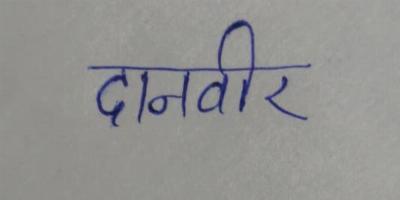 दानवीर